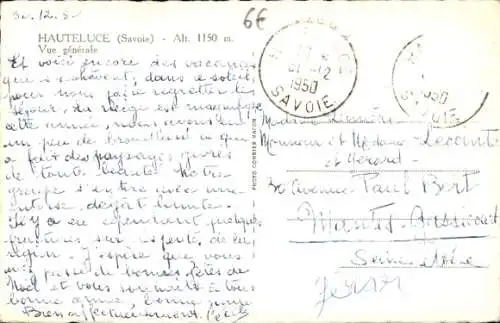 30.12.5
6€
HAUTELUCE (Savoie) - Alt. 1150 m.
Vue générale
Et voici encore des vacances
qui s'achèvent, dans le soleil
pour nous faire regretter le
séjour. La neige est magnifique
cette année, nous avons eu
un peu de brouillard ce qui
a fait des paysages givrés
de toute beauté. Notre
groupe s'entre avec une
Il y a eu cependant quelques
fractures sur les pentes de la
région. J'espère que vous
avez passé de bonnes fêtes de
Noël et vous souhaite à tous
bonne année, bonne
Bien affectueusement. Cécile
PHOTO-COURRIER MACON
31-12
1950
SAVOIE
1950
SAVOIE
Madame
Monsieur et Madame Lecomte
et Gérard
30 Avenue Paul Bert
Mantes-Gassicourt
Seine et Oise